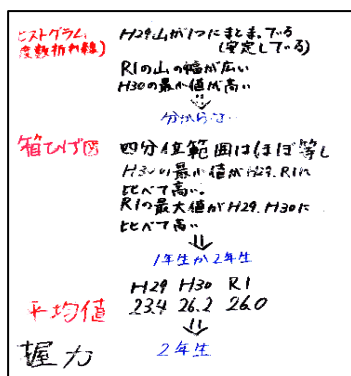 ヒストグラム、
度数折れ線)
H29 山が1つにまとまっている
(安定している)
R1の山の幅が広い
H30の最小値が高い
⇓
分からない…
箱ひげ図
四分位範囲はほぼ等し
H30の最小値がH29、R1に
比べて高い。
R1の最大値がH29、H30に
比べて高い
⇓
1年生か2年生
H29 H30 R1
平均値 23.4 26.2 26.0
⇓
握力 2年生